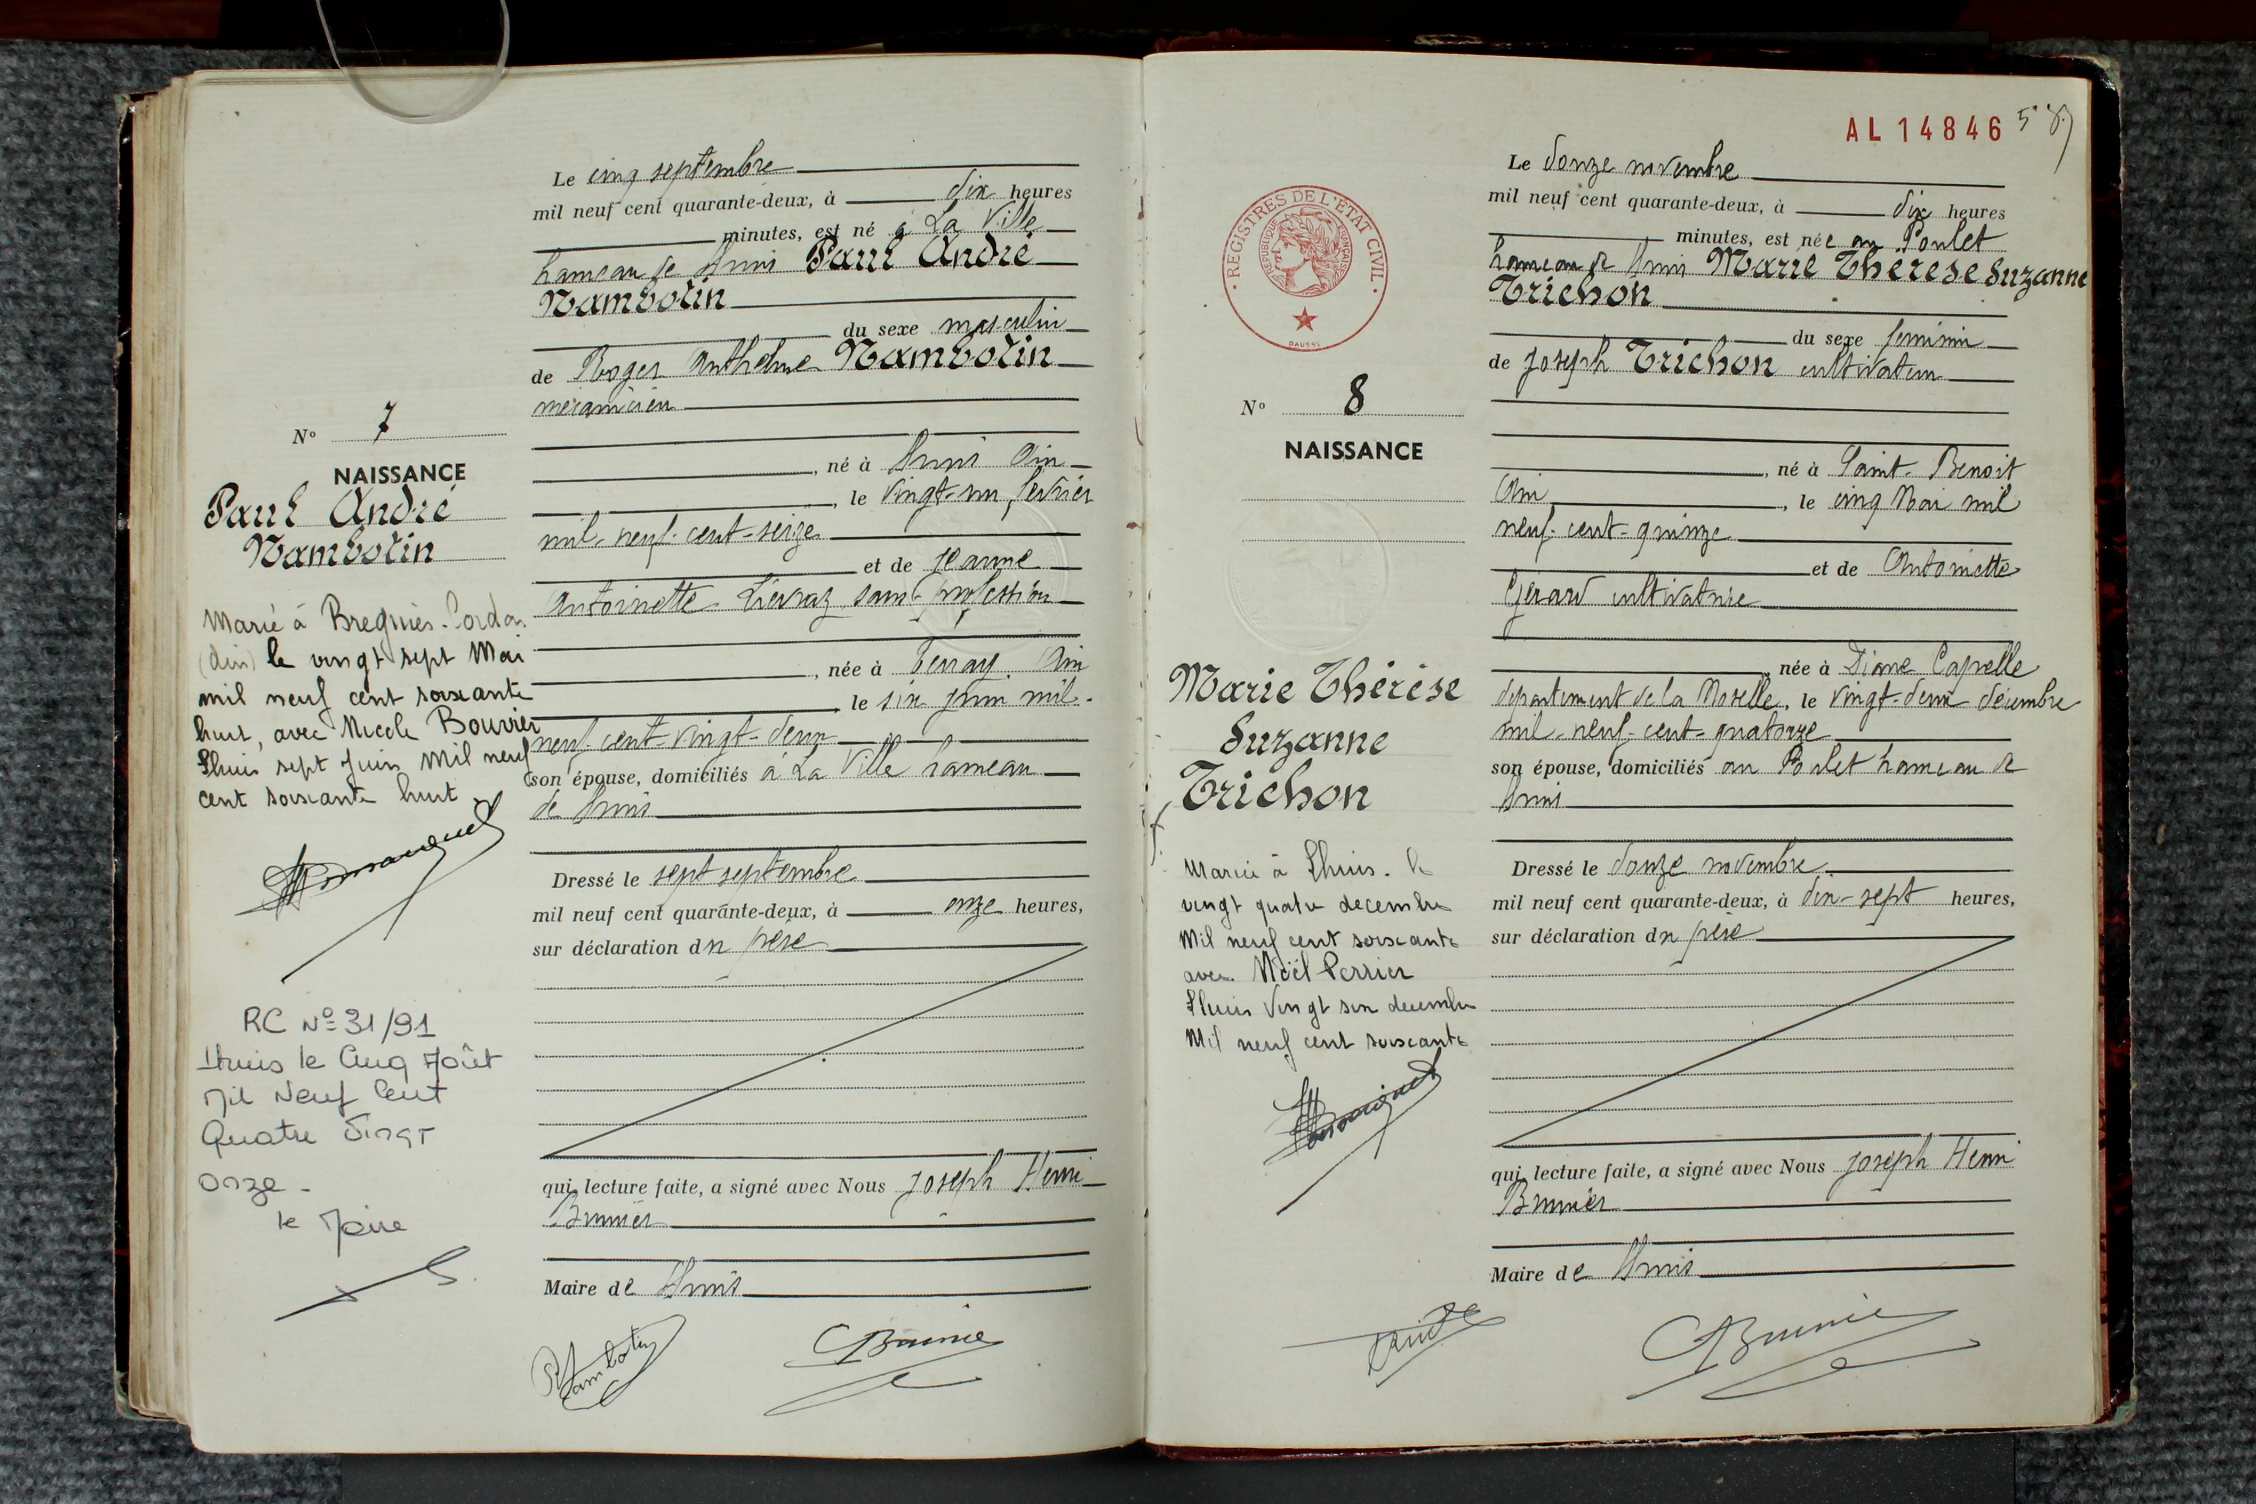 Le cinq septembre
mil neuf cent quarante-deux, à dix heures
minutes, est né à La Ville
hameau de Lhuis Paul André
Nambotin
du sexe masculin
de Roger Anthelme Nambotin
mécanicien
né à Lhuis Ain
, le vingt-un février
mil-neuf-cent-seize
et de Jeanne
Antoinette Liévraz sans profession
, née à Tenay Ain
le six juin mil-
neuf-cent-vingt-deux
son épouse, domiciliés à La Ville hameau
de Lhuis
Dressé le sept septembre
mil neuf cent quarante-deux, à onze heures,
sur déclaration du père
qui, lecture faite, a signé avec Nous Joseph Henri
Brunier
Maire de Lhuis
No 7
NAISSANCE
Paul André
Nambotin
Marié à Bregnier-Cordon
(Ain) le vingt sept Mai
mil neuf cent soixante
huit, avec Nicole Bouvier
Lhuis sept Juin Mil neuf
cent soixante huit.
RC No 31/91
Lhuis le Cinq Août
Mil Neuf Cent
Quatre Vingt
Onze -
le Maire
AL 14846
REGISTRES DE L'ÉTAT CIVIL
RÉPUBLIQUE FRANÇAISE
Le douze novembre
mil neuf cent quarante-deux, à dix heures
minutes, est née au Poulet
hameau de Lhuis Marie Thérèse Suzanne
Trichon
du sexe féminin
de Joseph Trichon cultivateur
, né à Saint-Benoit
Ain, le cinq Mai mil
neuf-cent-quinze
et de Antoinette
Gérard cultivatrice
née à Diane Capelle
département de la Moselle, le vingt-deux décembre
mil-neuf-cent-quatorze
son épouse, domiciliés au Poulet hameau de
Lhuis
Dressé le douze novembre
mil neuf cent quarante-deux, à dix-sept heures,
sur déclaration du père
qui, lecture faite, a signé avec Nous Joseph Henri
Brunier
Maire de Lhuis
No 8
NAISSANCE
Marie Thérèse
Suzanne
Trichon
Mariée à Lhuis. le
vingt quatre decembre
Mil neuf cent soixante
avec Noël Perrier
Lhuis Vingt six decembre
Mil neuf cent soixante